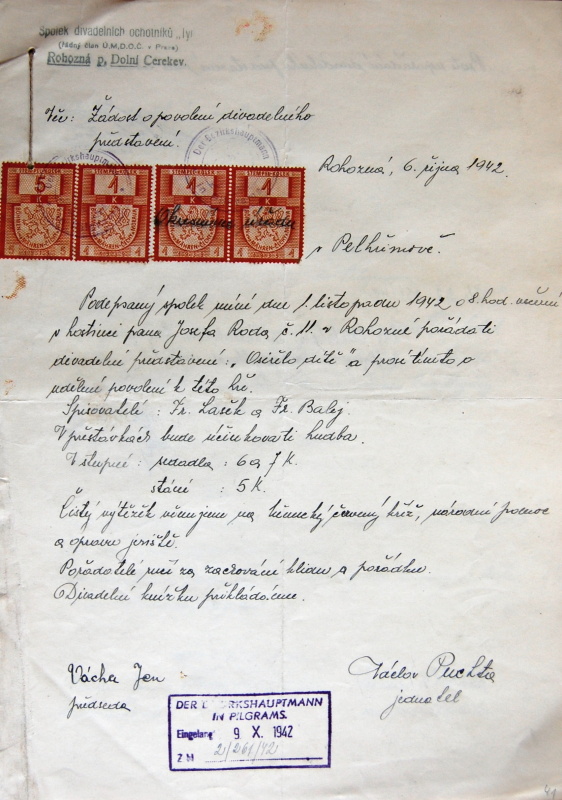 Spolek divadelních ochotníků „Tyl
(řádný člen Ú.M.D.O.Č. v Praze)
Rohozná p. Dolní Cerekev.
Věc: Žádost o povolení divadelního
představení.
Der Bezirkshauptmann
Der Bezirkshauptmann
Rohozná, 6. října 1942.
STEMPELKOLEK STEMPELKOLEK STEMPELKOLEK STEMPELKOLEK
5 1 1 1
K K K K
Okresnímu úřadu
v Pelhřimově.
Podepsaný spolek míní dne 1. listopadu 1942 o 8. hod. večerní
v hostinci pana Josefa Roda, č. 11. v Rohozné pořádati
divadelní představení: „Osiřelo dítě" a prosí tímto o
udělení povolení k této hře.
Spisovatelé: Fr. Lasěk a Fr. Balej.
V přestávkách bude účinkovati hudba.
Vstupné: sedadla: 6 a 7 K.
" stání: 5 K.
Čistý výtěžek věnujem na Německý červený kříž, národní pomoc
a opravu jeviště.
Pořadatelé ručí za zachování klidu a pořádku.
Divadelní knížku přikládáme.
Vácha Jan
předseda
Václav Puchta
jednatel
DER BEZIRKSHAUPTMANN
IN PILGRAMS.
Eingelangt 9 X. 1942
Z M 2/261/42
41